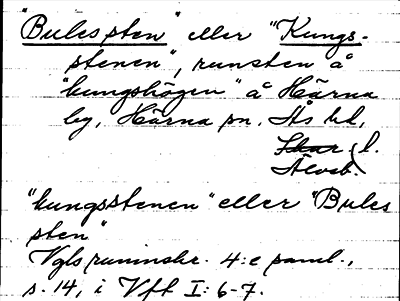 "Bules sten" eller "Kungs-
stenen", runsten å
"kungshögen" å Härna
by, Härna sn. Ås hd,
Skar l.
Älvsb.
"kungsstenen" eller "Bules
sten"
Vgls runinskr. 4:e saml.,
s. 14, i Vft I: 6-7.